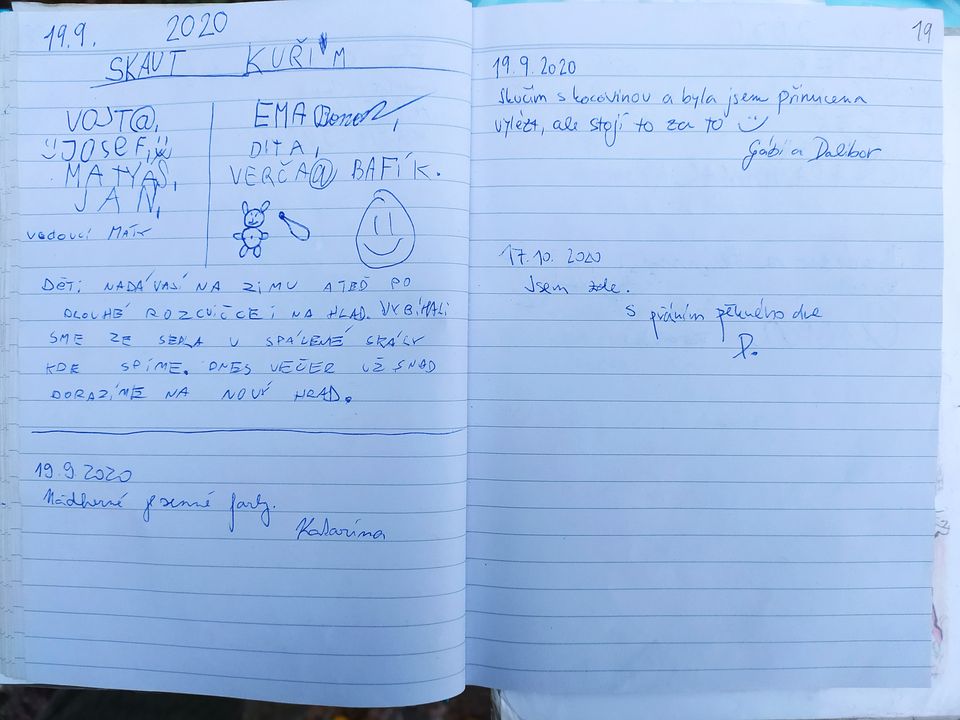 19.9. 2020
SKAUT KUŘIM
VOJT@,
JOSEF,
MATYÁŠ,
JAN,
vedoucí Máty
EMA
DITA,
VERČA@ BAFÍK.
DĚTI NADÁVAJÍ NA ZIMU A TEĎ PO
DLOUHÉ ROZCVIČCE I NA HLAD. VYBÍHALI
SME ZE SEDLA U SPÁLENÉ SKÁLY
KDE SPÍME. DNES VEČER UŽ SNAD
DORAZÍME NA NOVÝ HRAD.
19.9.2020
Nádherné jesenné farby.
Katarína
19
19.9.2020
s kocovinou a byla jsem přinucena
vylézt, ale stojí to za to
Gábi a Dalibor
17.10. 2020
Jsem zde.
S přáním pěkného dne
P.